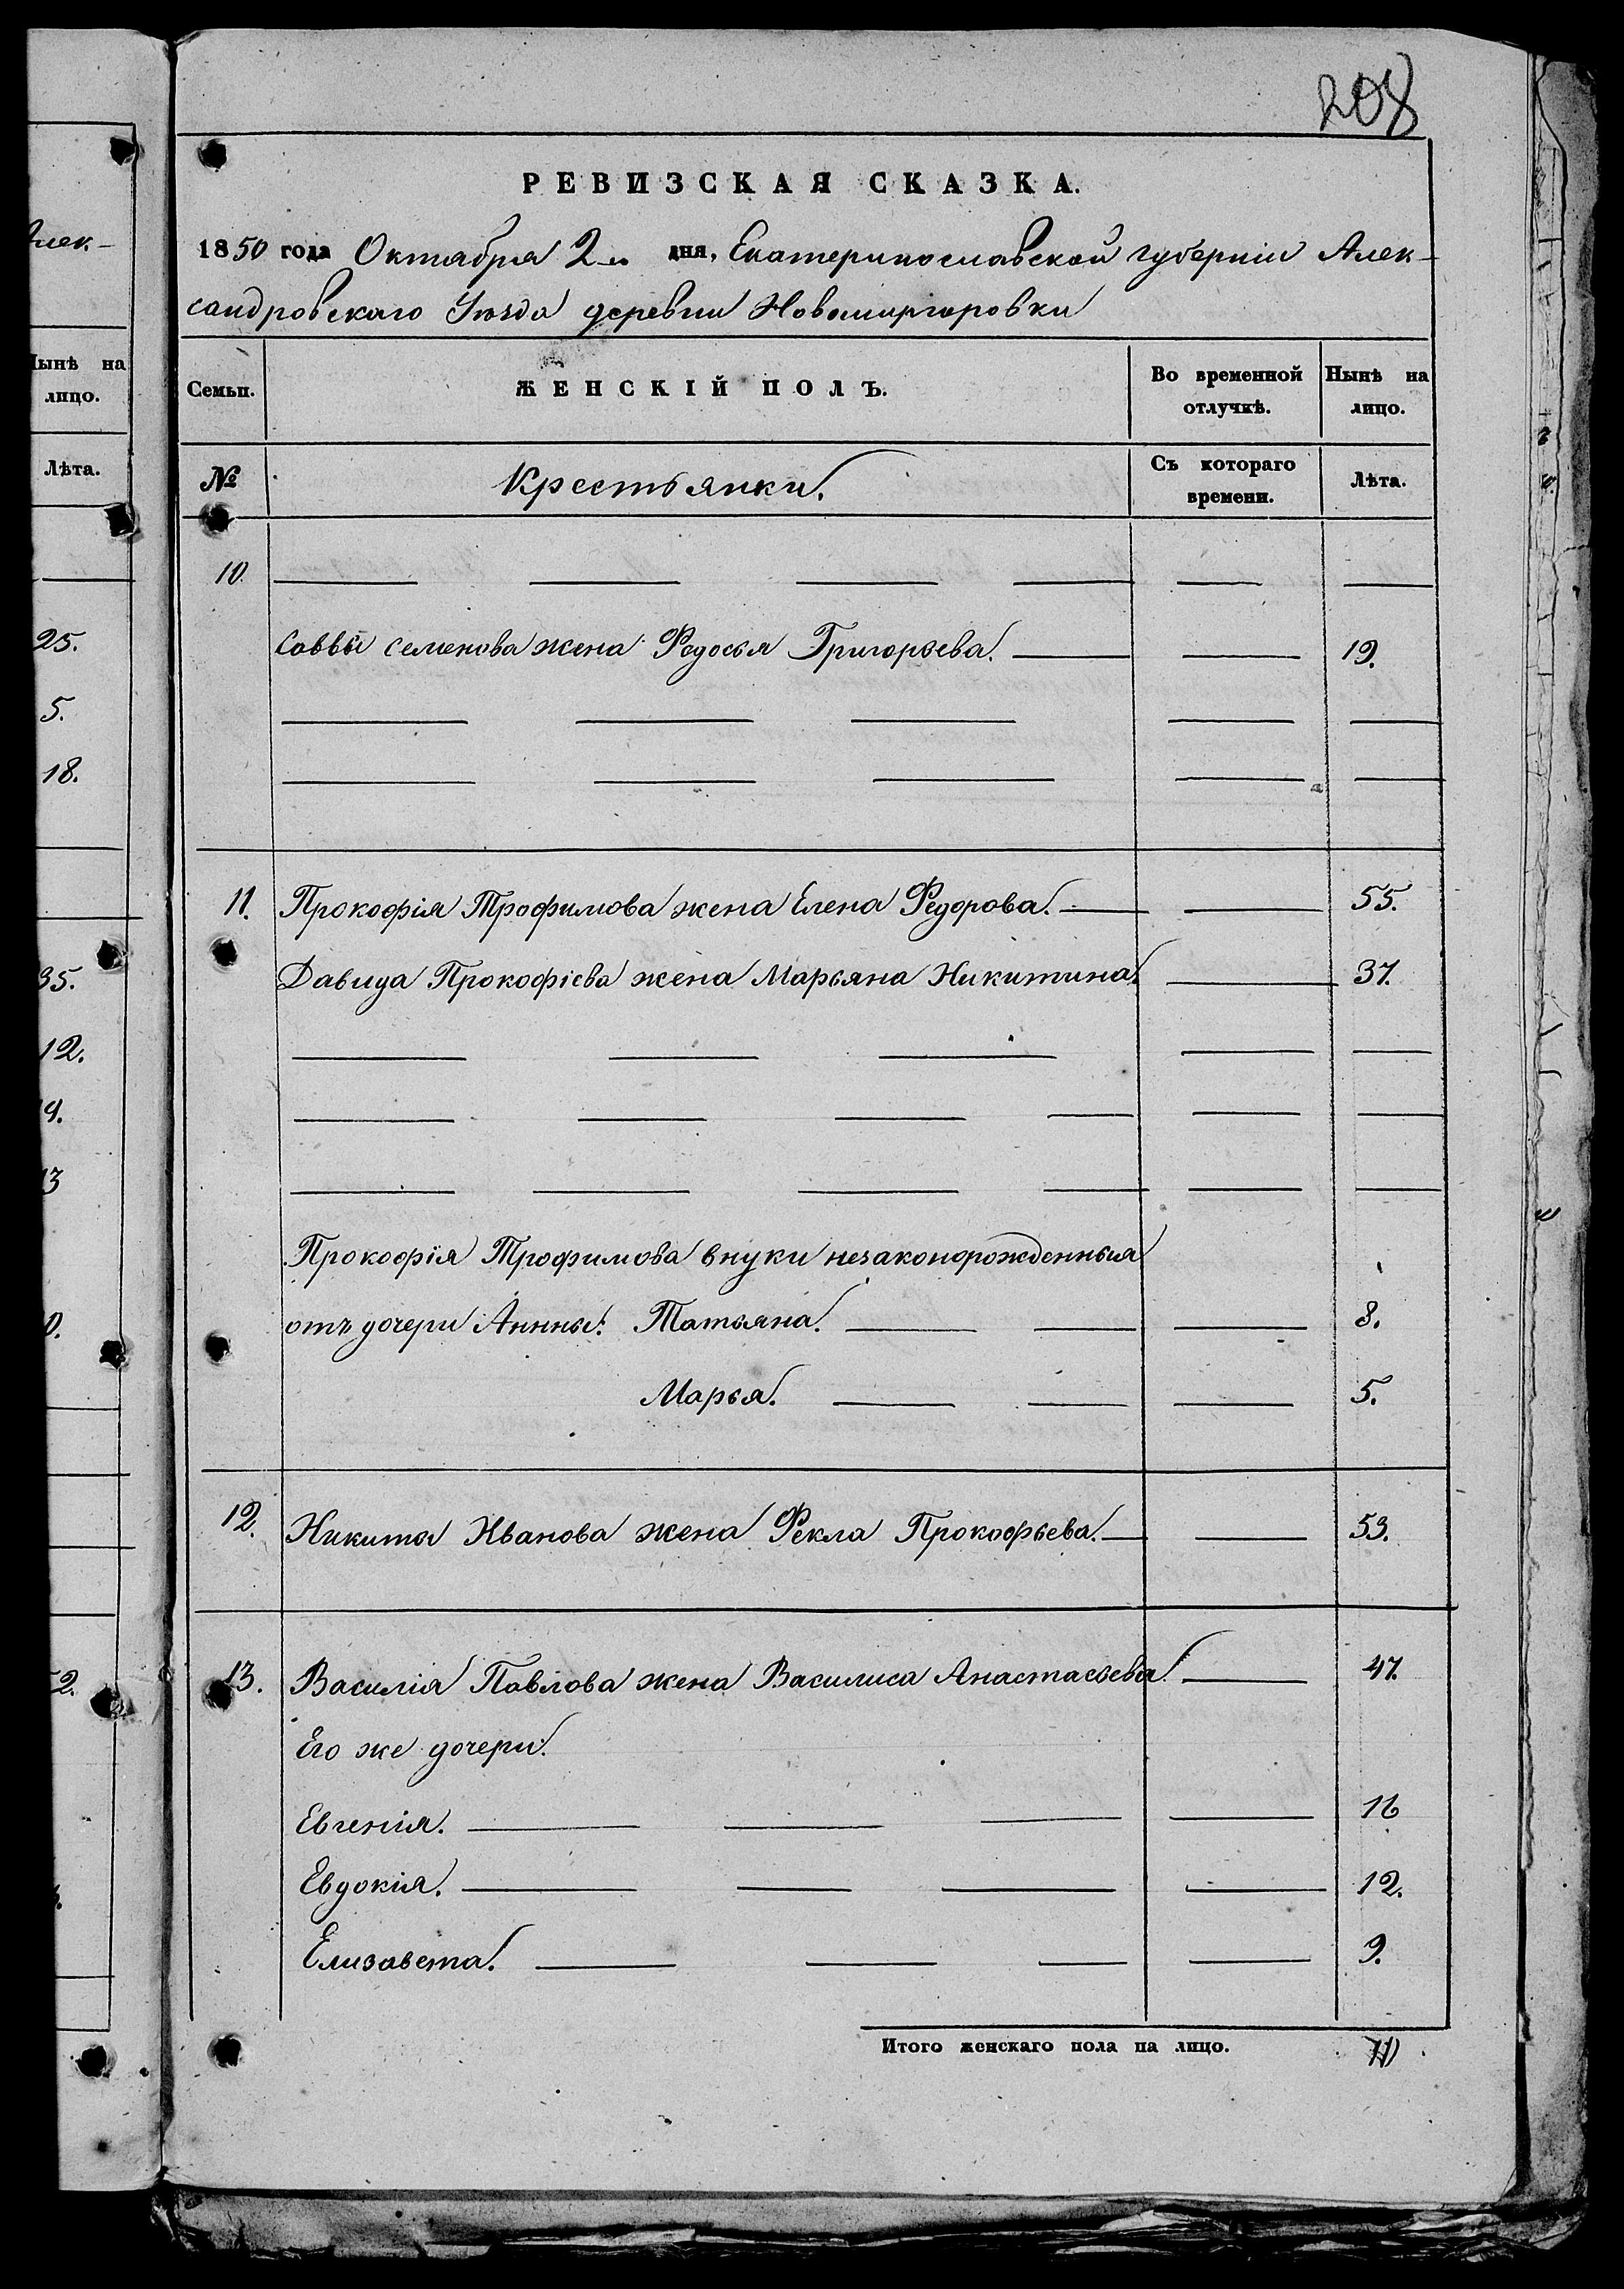 208
РЕВИЗСКАЯ СКАЗКА.
1850 года Октября 2го дня, Екатеринославской губерніи Алек-
сандровскаго Уѣзда деревни Новомиргоровки
Семьи.
ЖЕНСКІЙ ПОЛЪ.
Во временной отлучкѣ.
Нынѣ на лицо.
№
Крестьянки.
Съ котораго времени.
Лѣта.
10.
Саввы Семенова жена Федосья Григорьева. 19.
11. Прокофія Трофимова жена Елена Федорова. 55.
Давида Прокофіева жена Марьяна Никитина. 37.
Прокофія Трофимова внуки незаконорожденныя
отъ дочери Анны: Татьяна. 8.
Марья. 5.
12. Никиты Иванова жена Фекла Прокофьева. 53.
13. Василія Павлова жена Василиса Анастасьева. 47.
Его же дочери.
Евгенія. 16
Евдокія. 12.
Елизавета. 9.
Итого женскаго пола на лицо.
Алек-
Нынѣ на
лицо.
Лѣта.
25.
5.
18.
35.
12.